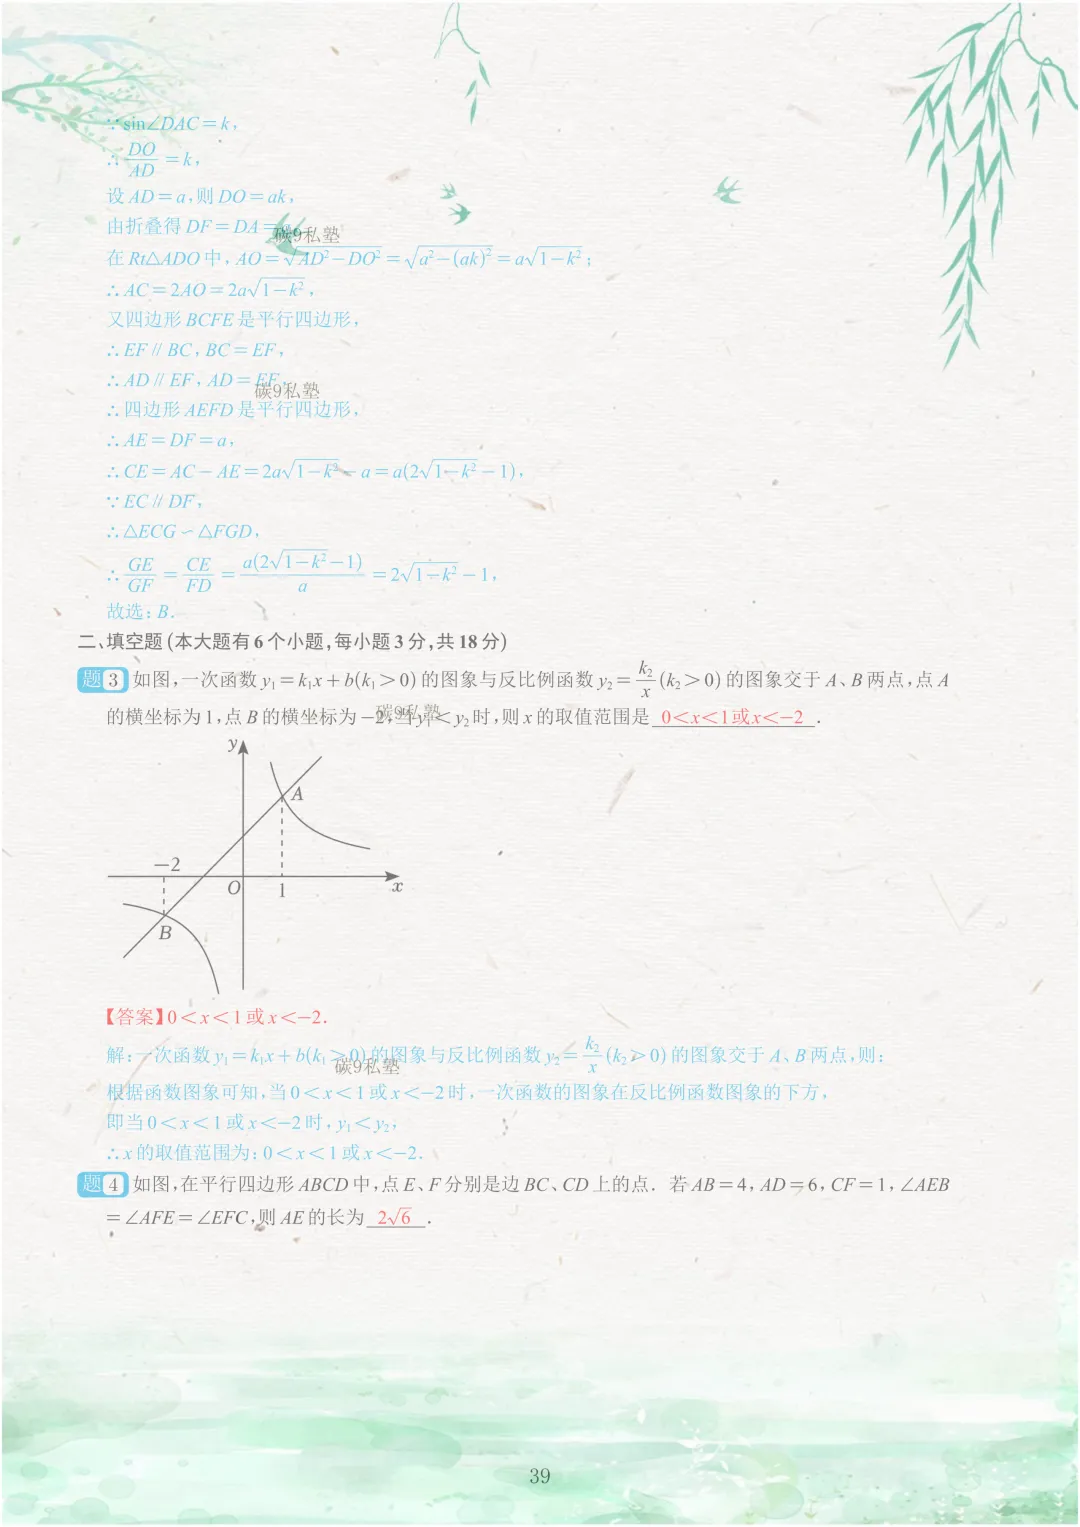 ∵sin∠DAC=k,
∴DO/AD=k,
设AD=a,则DO=ak,
由折叠得DF=DA=
碳9私塾
在Rt△ADO中,AO=√(AD²-DO²)=√(a²-(ak)²)=a√(1-k²);
∴AC=2AO=2a√(1-k²),
又四边形BCFE是平行四边形,
∴EF∥BC,BC=EF,
∴AD∥EF,AD=EF,
碳9私塾
∴四边形AEFD是平行四边形,
∴AE=DF=a,
∴CE=AC-AE=2a√(1-k²)-a=a(2√(1-k²)-1),
∵EC∥DF,
∴△ECG∽△FGD,
∴GE/GF=CE/FD=a(2√(1-k²)-1)/a=2√(1-k²)-1,
故选:B.
二、填空题(本大题有6个小题,每小题3分,共18分)
题3 如图,一次函数y₁=k₁x+b(k₁>0)的图象与反比例函数y₂=k₂/x(k₂>0)的图象交于A、B两点,点A
的横坐标为1,点B的横坐标为-2,当y₁<y₂时,则x的取值范围是 0<x<1或x<-2 .
碳9私塾
y
A
-2
O
1
x
B
【答案】0<x<1或x<-2.
解:一次函数y₁=k₁x+b(k₁>0)的图象与反比例函数y₂=k₂/x(k₂>0)的图象交于A、B两点,则:
碳9私塾
根据函数图象可知,当0<x<1或x<-2时,一次函数的图象在反比例函数图象的下方,
即当0<x<1或x<-2时,y₁<y₂,
∴x的取值范围为:0<x<1或x<-2.
题4 如图,在平行四边形ABCD中,点E、F分别是边BC、CD上的点.若AB=4,AD=6,CF=1,∠AEB
=∠AFE=∠EFC,则AE的长为 2√6 .
39